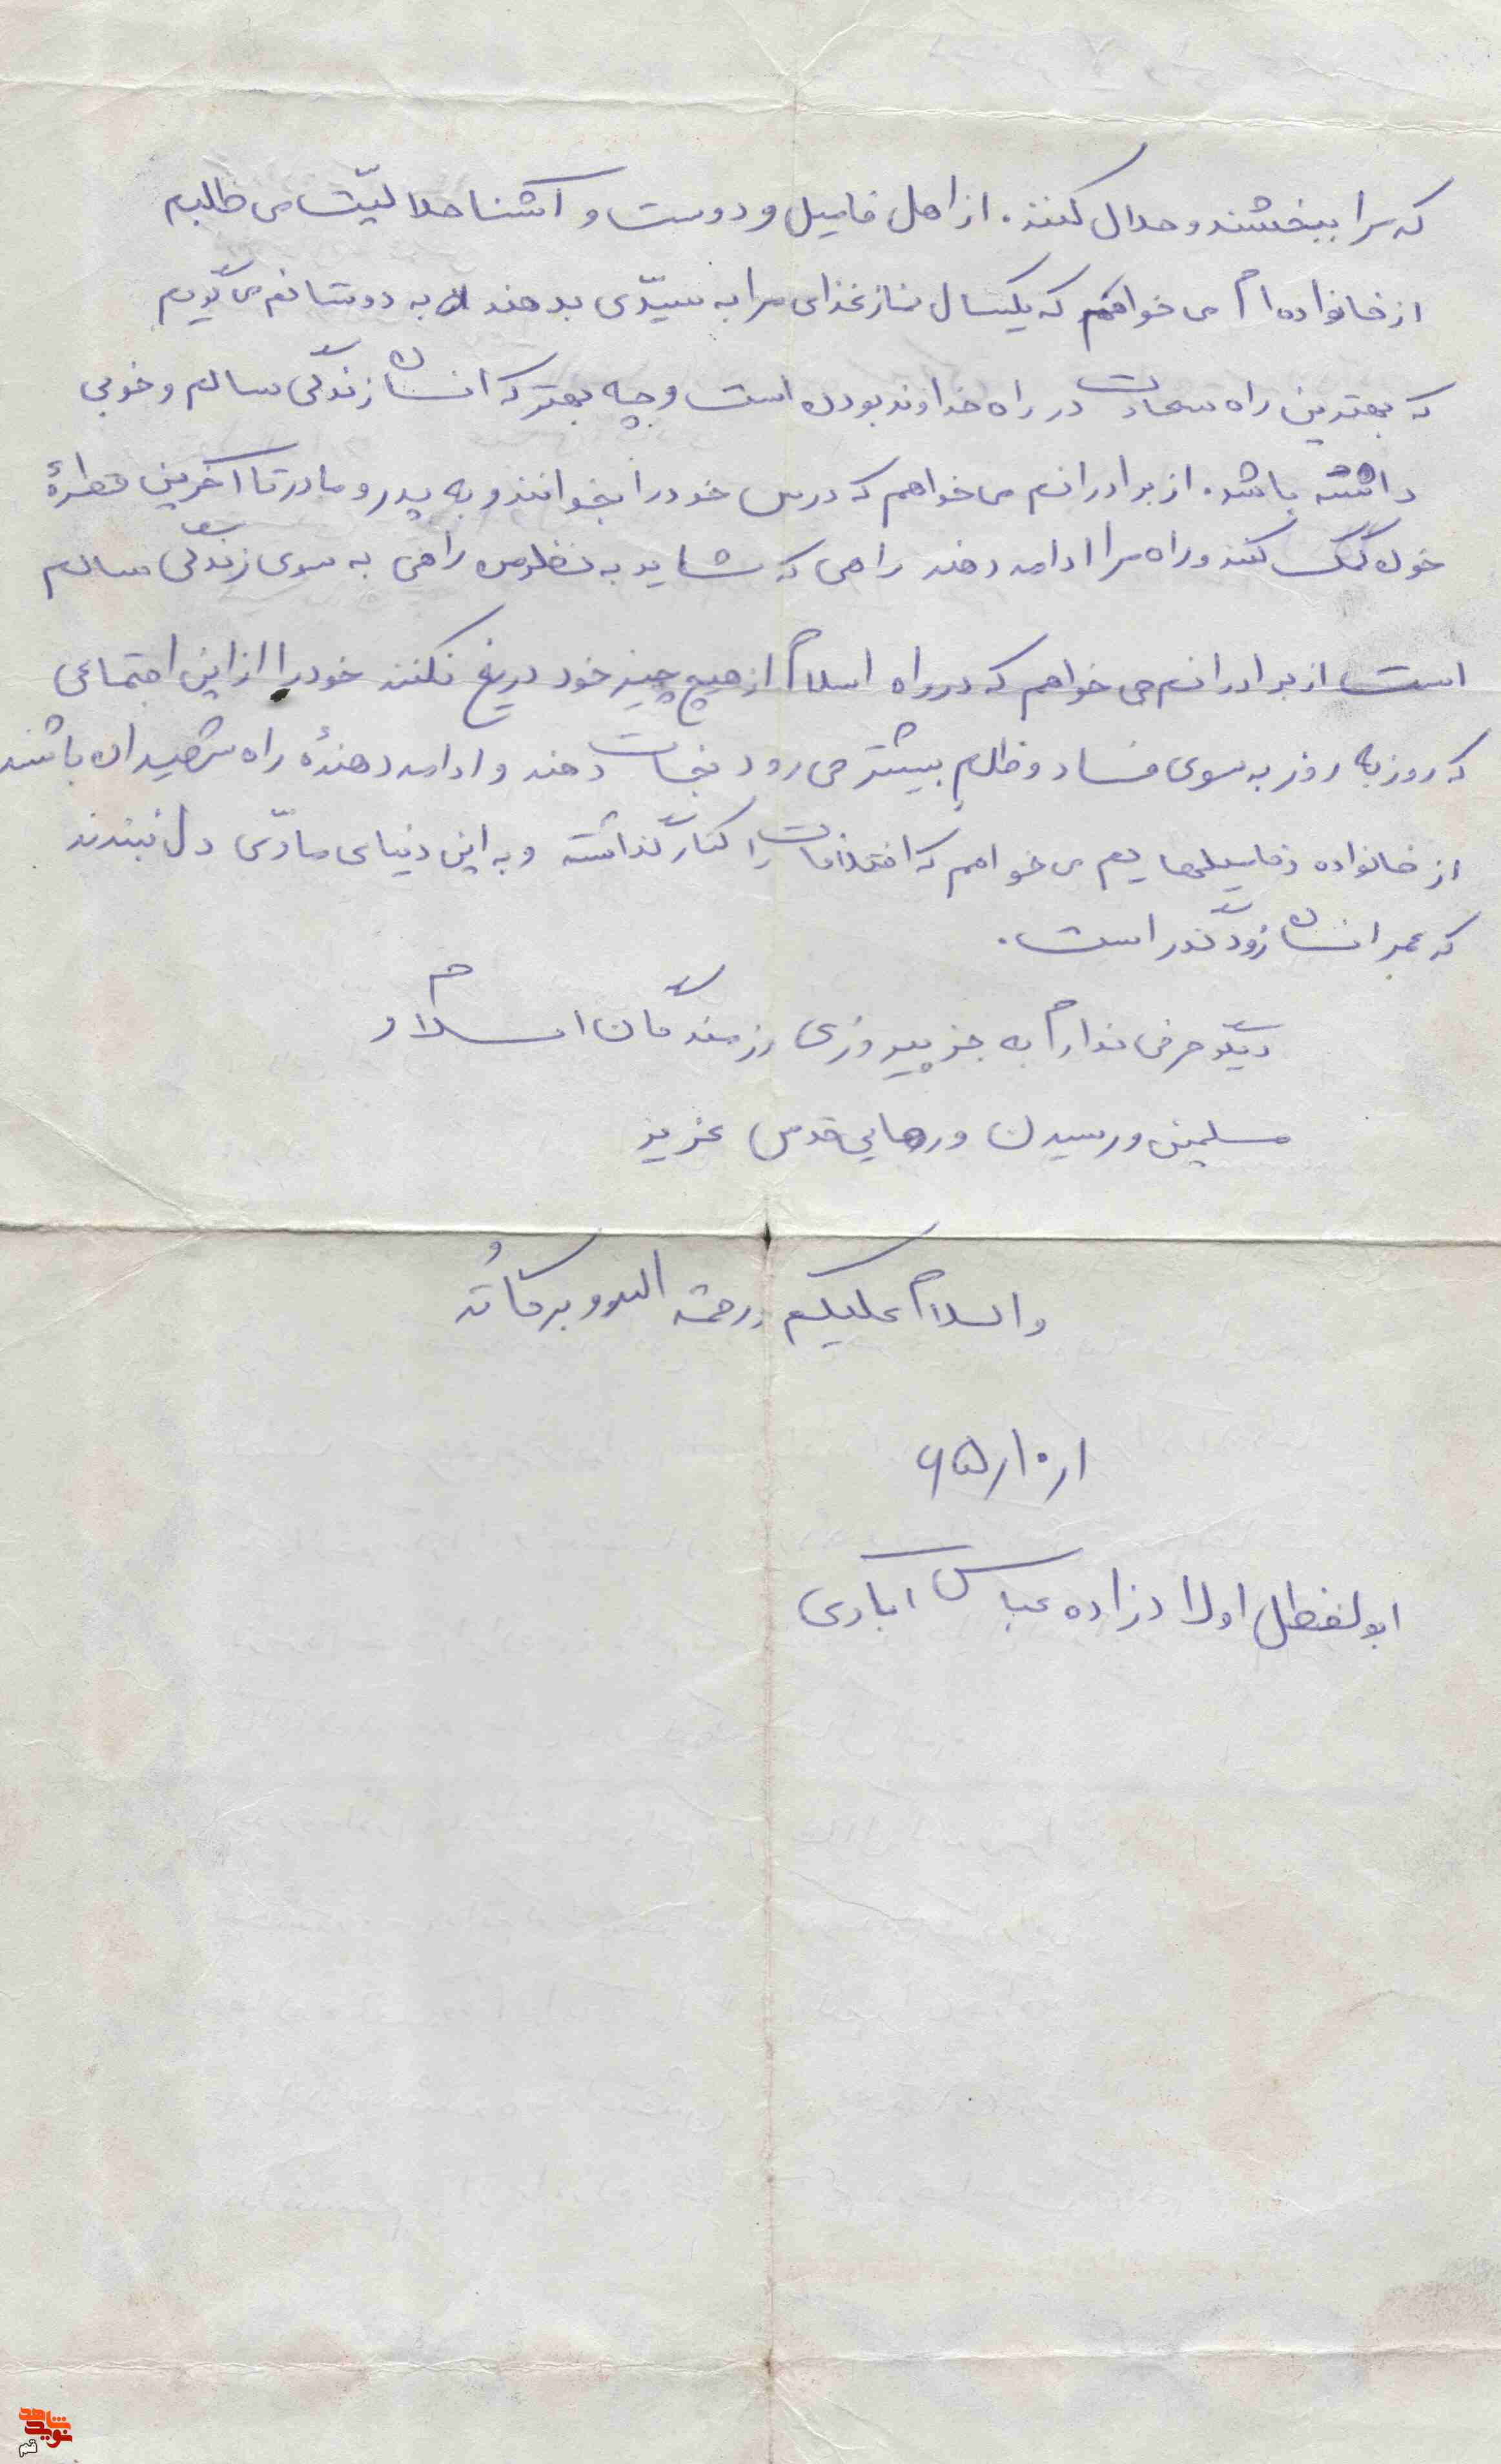 که مرا ببخشند و حلال کنند. از اهل فامیل و دوست و آشنا حلالیّت می طلبم
از خانواده ام می خواهم که یکسال نماز غذای مرا به سیّدی بدهند به دوستانم می گویم
که بهترین راه سعادت در راه خداوند بودن است و چه بهتر که انسان زندگی سالم و خوبی
داشته باشد. از برادرانم می خواهم که درس خود را بخوانند و به پدر و مادر تا آخرین قطرهٔ
خون کمک کنند و راه مرا ادامه دهند راهی که شاید به نظر من راهی به سوی زندگی سالم
است از برادرانم می خواهم که در راه اسلام از هیچ چیز خود دریغ نکنند خود را از این اجتماعی
که روز به روز به سوی فساد و ظلم بیشتر می رود نجات دهند و ادامه دهندهٔ راه شهیدان باشند
از خانواده و فامیلهایم می خواهم که اختلافات را کنار گذاشته و به این دنیای مادّی دل نبندند
که عمر انسان زودگذر است.
دیگر حرفی ندارم به جز پیروزی رزمندگان اسلام و
مسلمین و رسیدن و رهایی قدس عزیز
والسلام علیکم و رحمة الله و برکاته
۶۵/۱۰/۱
ابولفظل اولادزاده عباس آبادی
نوید شاهد
قم